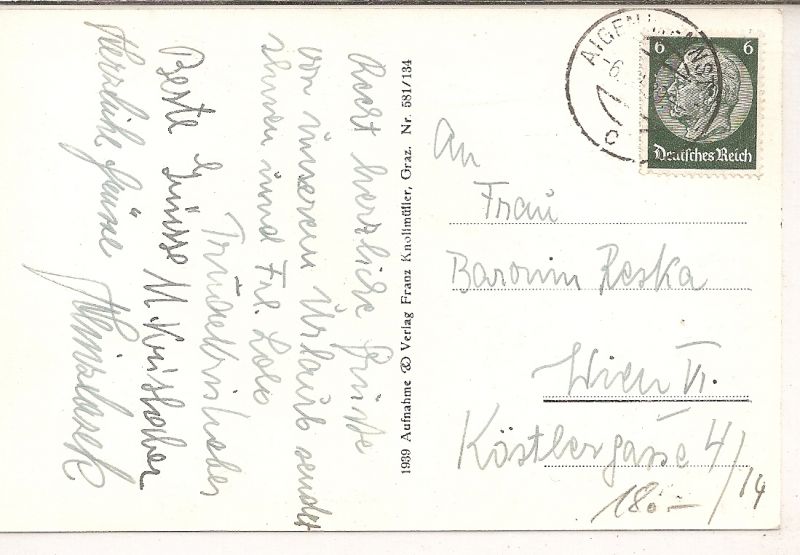 Recht herzliche Grüße
von unserem Urlaub sendet
Ihnen und Frl. Lolo
Beste Grüsse M.
Herzliche Grüsse
1939 Aufnahme & Verlag Franz Knollmüller, Graz. Nr. 581/134
AIGEN I. ENNS
6 6
Deutsches Reich
An
Frau
Baronin Reska
Wien VI.
Köstlergasse 4/14
180.-